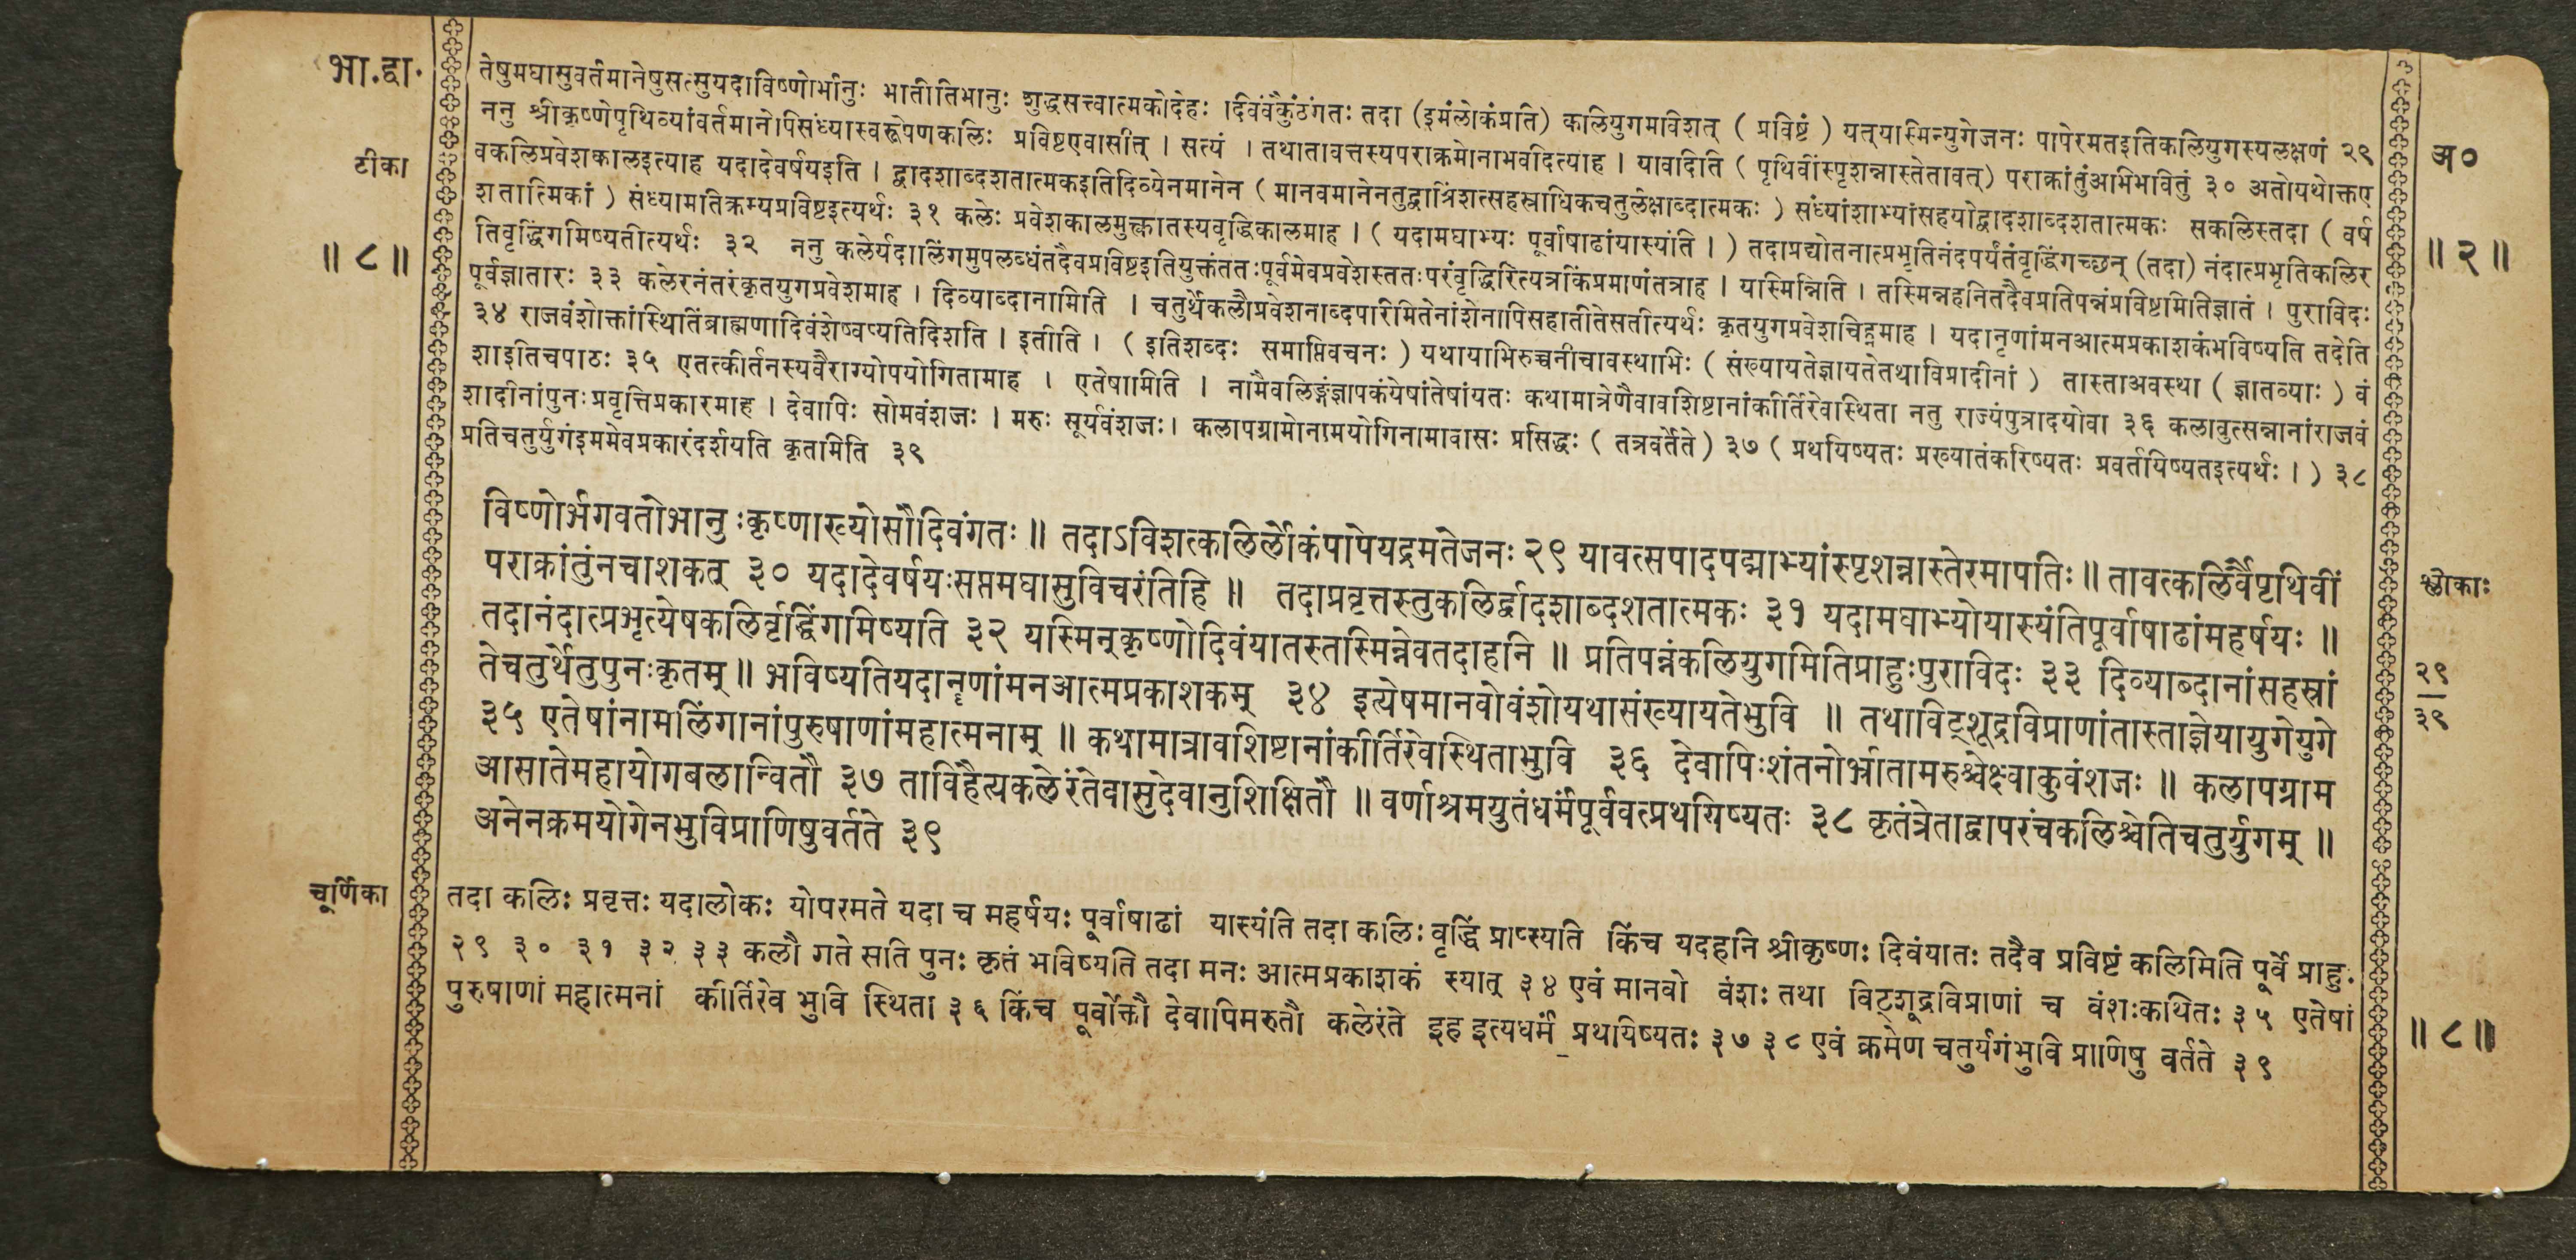 भा.द्वा.
तेषुमघासुवर्तमानेषुसत्सुयदाविष्णोर्भानुः भातीतिभानुः शुद्धसत्त्वात्मकोदेहः ।दिवंवैकुंठंगतः तदा (इमंलोकंप्रति) कलियुगमाविशत् ( प्रविष्टं ) यत्‌यास्मिन्युगेजनः पापेरमतइतिकलियुगस्यलक्षणं २९
ननु श्रीकृष्णेपृथिव्यांवर्तमानेपिसंध्यास्वरूपेणकलिः प्रविष्टएवासीत् । सत्यं । तथातावत्तस्यपराक्रमोनाभवदित्याह । यावदिति ( पृथिवींस्पृशन्नास्तेतावत्) पराक्रांतुंअभिभावितुं ३० अतोयथोक्तए
टीका
वकलिप्रवेशकालइत्याह यदादेवर्षयइति । द्वादशाब्दशतात्मकइतिदिव्येनमानेन ( मानवमानेनतुद्वात्रिंशत्सहस्राधिकचतुर्लक्षाब्दात्मकः ) संध्यांशाभ्यांसहयोद्वादशाब्दशतात्मकः सकलिस्तदा ( वर्ष
शतात्मिकां ) संध्यामतिक्रम्यप्रविष्टइत्यर्थः ३१ कलेः प्रवेशकालमुक्त्वातस्यवृद्धिकालमाह । ( यदामघाभ्यः पूर्वाषाढांयास्यंति । ) तदाप्रद्योतनात्प्रभृतिनंदपर्यंतंवृद्धिंगच्छन् (तदा) नंदात्प्रभृतिकलिर
॥ ८॥
तिवृद्धिंगमिष्यतीत्यर्थः ३२ ननु कलेर्यदालिंगमुपलब्धंतदैवप्रविष्टइतियुक्तंततःपूर्वमेवप्रवेशस्ततःपरंवृद्धिरित्यत्रकिंप्रमाणंतत्राह । यास्मिन्निति । तस्मिन्नहनितदैवप्रतिपन्नंप्रविष्टमितिज्ञातं । पुराविदः
पूर्वज्ञातारः ३३ कलेरनंतरंकृतयुगप्रवेशमाह । दिव्याब्दानामिति । चतुर्थेकलौप्रवेशनाब्दपारिमितेनांशेनापिसहातीतेसतीत्यर्थः कृतयुगप्रवेशचिह्नमाह । यदानृणांमनआत्मप्रकाशकंभविष्यति तदेति
३४ राजवंशोक्तांस्थितिंब्राह्मणादिवंशेष्वप्यतिदिशति । इतीति । ( इतिशब्दः समाप्तिवचनः ) यथायाभिरुच्चनीचावस्थाभिः ( संख्यायतेज्ञायतेतथाविप्रादीनां ) तास्ताअवस्था ( ज्ञातव्याः ) वं
शाइतिचपाठः ३५ एतत्कीर्तनस्यवैराग्योपयोगितामाह । एतेषामिति । नामैवलिङ्गंज्ञापकंयेषांतेषांयतः कथामात्रेणैवावशिष्टानांकीर्तिरेवास्थिता नतु राज्यंपुत्रादयोवा ३६ कलावुत्सन्नानांराजवं
शादीनांपुनःप्रवृत्तिप्रकारमाह । देवापिः सोमवंशजः । मरुः सूर्यवंशजः। कलापग्रामोनामयोगिनामावासः प्रसिद्धः ( तत्रवर्तेते ) ३७ ( प्रथयिष्यतः प्रख्यातंकरिष्यतः प्रवर्तयिष्यतइत्यर्थः । ) ३८
प्रतिचतुर्युगंइममेवप्रकारंदर्शयति कृतामिति ३९
अ०
॥ २॥
विष्णोर्भगवतोभानुःकृष्णाख्योसौदिवंगतः ॥ तदाऽविशत्कलिर्लोकंपापेयद्रमतेजनः २९ यावत्सपादपद्माभ्यांस्पृशन्नास्तेरमापतिः ॥ तावत्कलिर्वैपृथिवीं
पराक्रांतुंनचाशकत् ३० यदादेवर्षयःसप्तमघासुविचरंतिहि ॥ तदाप्रवृत्तस्तुकलिर्द्वादशाब्दशतात्मकः ३१ यदामघाभ्योयास्यंतिपूर्वाषाढांमहर्षयः ॥
तदानंदात्प्रभृत्येषकलिर्वृद्धिंगमिष्यति ३२ यस्मिन्कृष्णोदिवंयातस्तस्मिन्नेवतदाहनि ॥ प्रतिपन्नंकलियुगमितिप्राहुःपुराविदः ३३ दिव्याब्दानांसहस्रां
तेचतुर्थेतुपुनःकृतम् ॥ भविष्यतियदानॄणांमनआत्मप्रकाशकम् ३४ इत्येषमानवोवंशोयथासंख्यायतेभुवि ॥ तथाविट्‌शूद्रविप्राणांतास्ताज्ञेयायुगेयुगे
३५ एतेषांनामलिंगानांपुरुषाणांमहात्मनाम् ॥ कथामात्रावशिष्टानांकीर्तिरेवस्थिताभुवि ३६ देवापिःशंतनोर्भ्रातामरुश्चेक्ष्वाकुवंशजः ॥ कलापग्राम
आसातेमहायोगबलान्वितौ ३७ ताविहैत्यकलेरंतेवासुदेवानुशिक्षितौ ॥ वर्णाश्रमयुतंधर्मंपूर्ववत्प्रथयिष्यतः ३८ कृतंत्रेताद्वापरंचकलिश्चेतिचतुर्युगम् ॥
अनेनक्रमयोगेनभुविप्राणिषुवर्तते ३९
श्लोकाः
२९
३९
चूर्णिका
तदा कलिः प्रवृत्तः यदालोकः योपरमते यदा च महर्षयः पूर्वाषाढां यास्यंति तदा कलिः वृद्धिं प्राप्स्यति किंच यदहनि श्रीकृष्णः दिवंयातः तदैव प्रविष्टं कलिमिति पूर्वे प्राहुः
२९ ३० ३१ ३२ ३३ कलौ गते सति पुनः कृतं भविष्यति तदा मनः आत्मप्रकाशकं स्यात् ३४ एवं मानवो वंशः तथा विट्‌शूद्रविप्राणां च वंशःकथितः ३५ एतेषां
पुरुषाणां महात्मनां कीर्तिरेव भुवि स्थिता ३६ किंच पूर्वोक्तौ देवापिमरुतौ कलेरंते इह इत्यधर्मं प्रथयिष्यतः ३७ ३८ एवं क्रमेण चतुर्यगंभुवि प्राणिषु वर्तते ३९
॥ ८॥